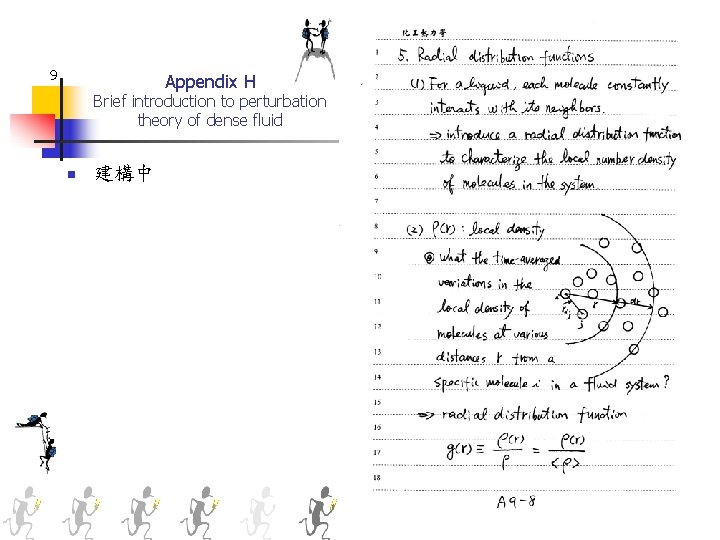 9
Appendix H
Brief introduction to perturbation
theory of dense fluid
建構中
化工熱力學
1 5. Radial distribution functions
2 (1) For a liquid, each molecule constantly
3 interacts with its neighbors.
4 ⇒ introduce a radial distribution function
5 to characterize the local number density
6 of molecules in the system.
7
8 (2) ρ(r) : local density
9 what the time-averaged
10 variations in the
11 local density of
12 molecules at various
13 distances r from a
14 specific molecule i in a fluid system?
15 ⇒ radial distribution function
16
17 g(r) ≡ ρ(r)/ρ = ρ(r)/<ρ>
18
i
r
dr
j
A9-8